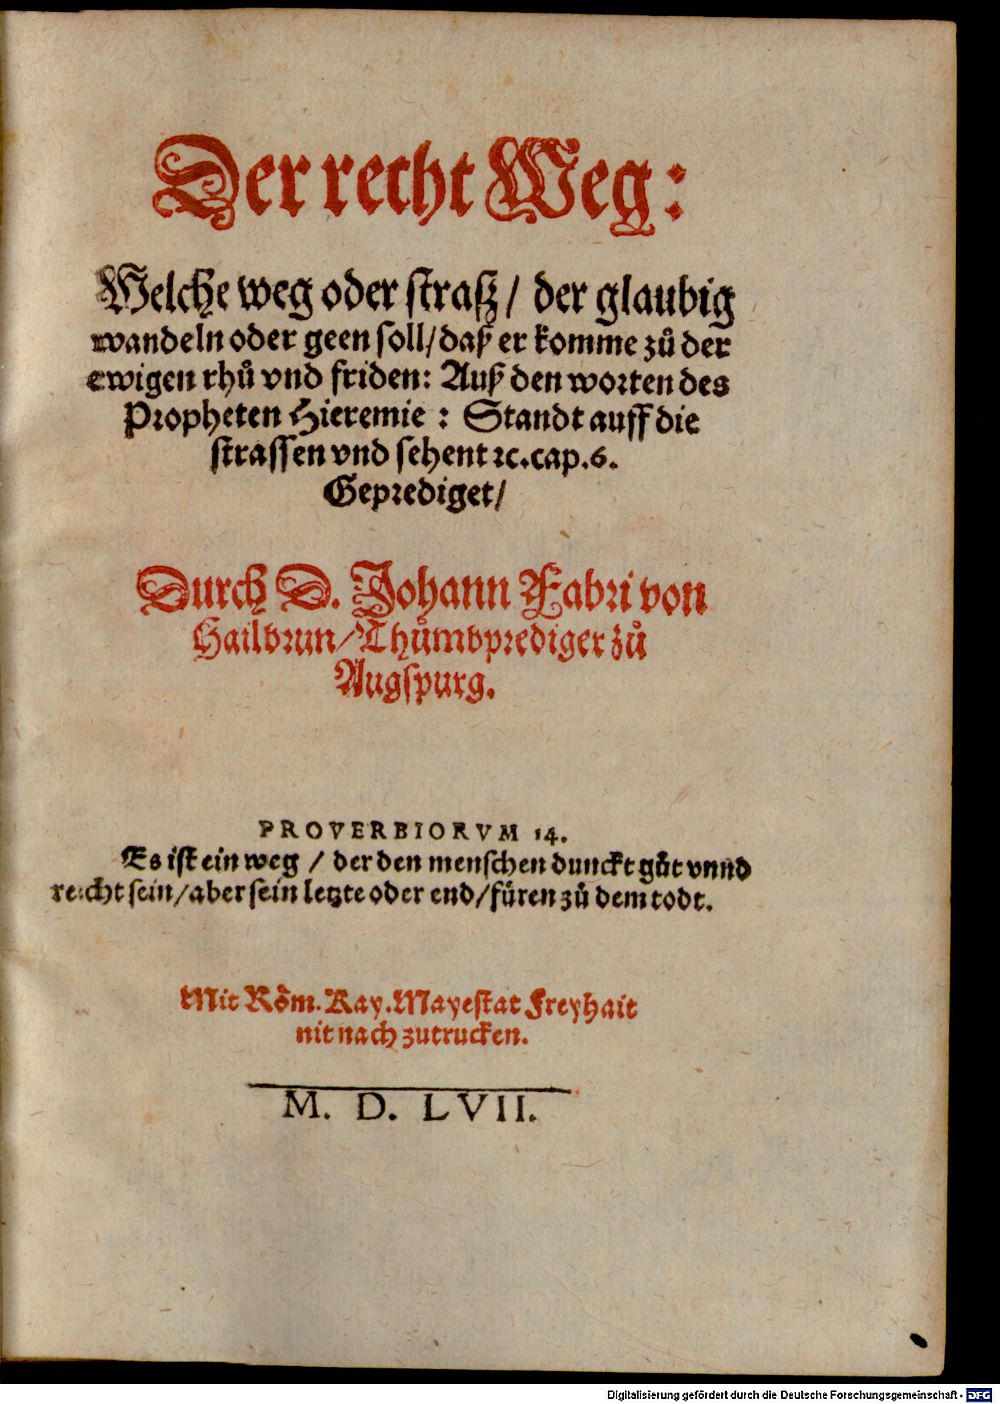 Der recht Weg:
Welche weg oder straß / der glaubig
wandeln oder geen soll / daß er komme zů der
ewigen rhů vnd friden: Auß den worten des
Propheten Hieremie : Standt auff die
strassen vnd sehent ꝛc. cap. 6.
Geprediget /
Durch D. Johann Fabri von
Hailbrun / Thůmbprediger zů
Augspurg.
PROVERBIORVM 14.
Es ist ein weg / der den menschen dunckt gůt vnnd
recht sein / aber sein letzte oder end / füren zů dem todt.
Mit Röm. Kay. Mayestat Freyhait
nit nach zutrucken.
M. D. LVII.
Digitalisierung gefördert durch die Deutsche Forschungsgemeinschaft - DFG